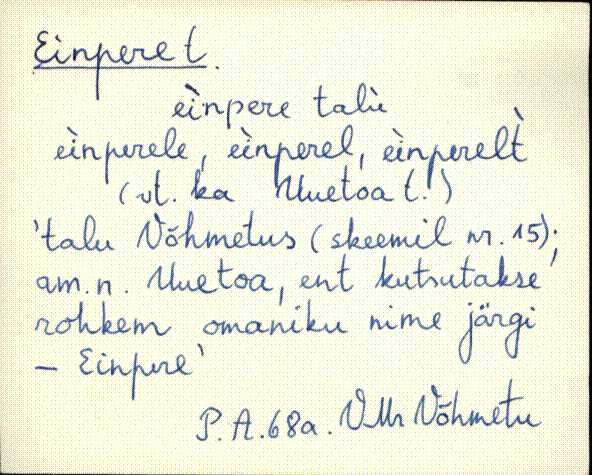 Einpere t.
èinpere talù
èinperele, èinperel, èinperelt̀
(vt. ka Uuetoa t.)
'talu Võhmetus (skeemil nr. 15);
am.n. Uuetoa, ent kutsutakse
rohkem omaniku nime järgi
– Einpere'
P.A.68a. VMr Võhmetu